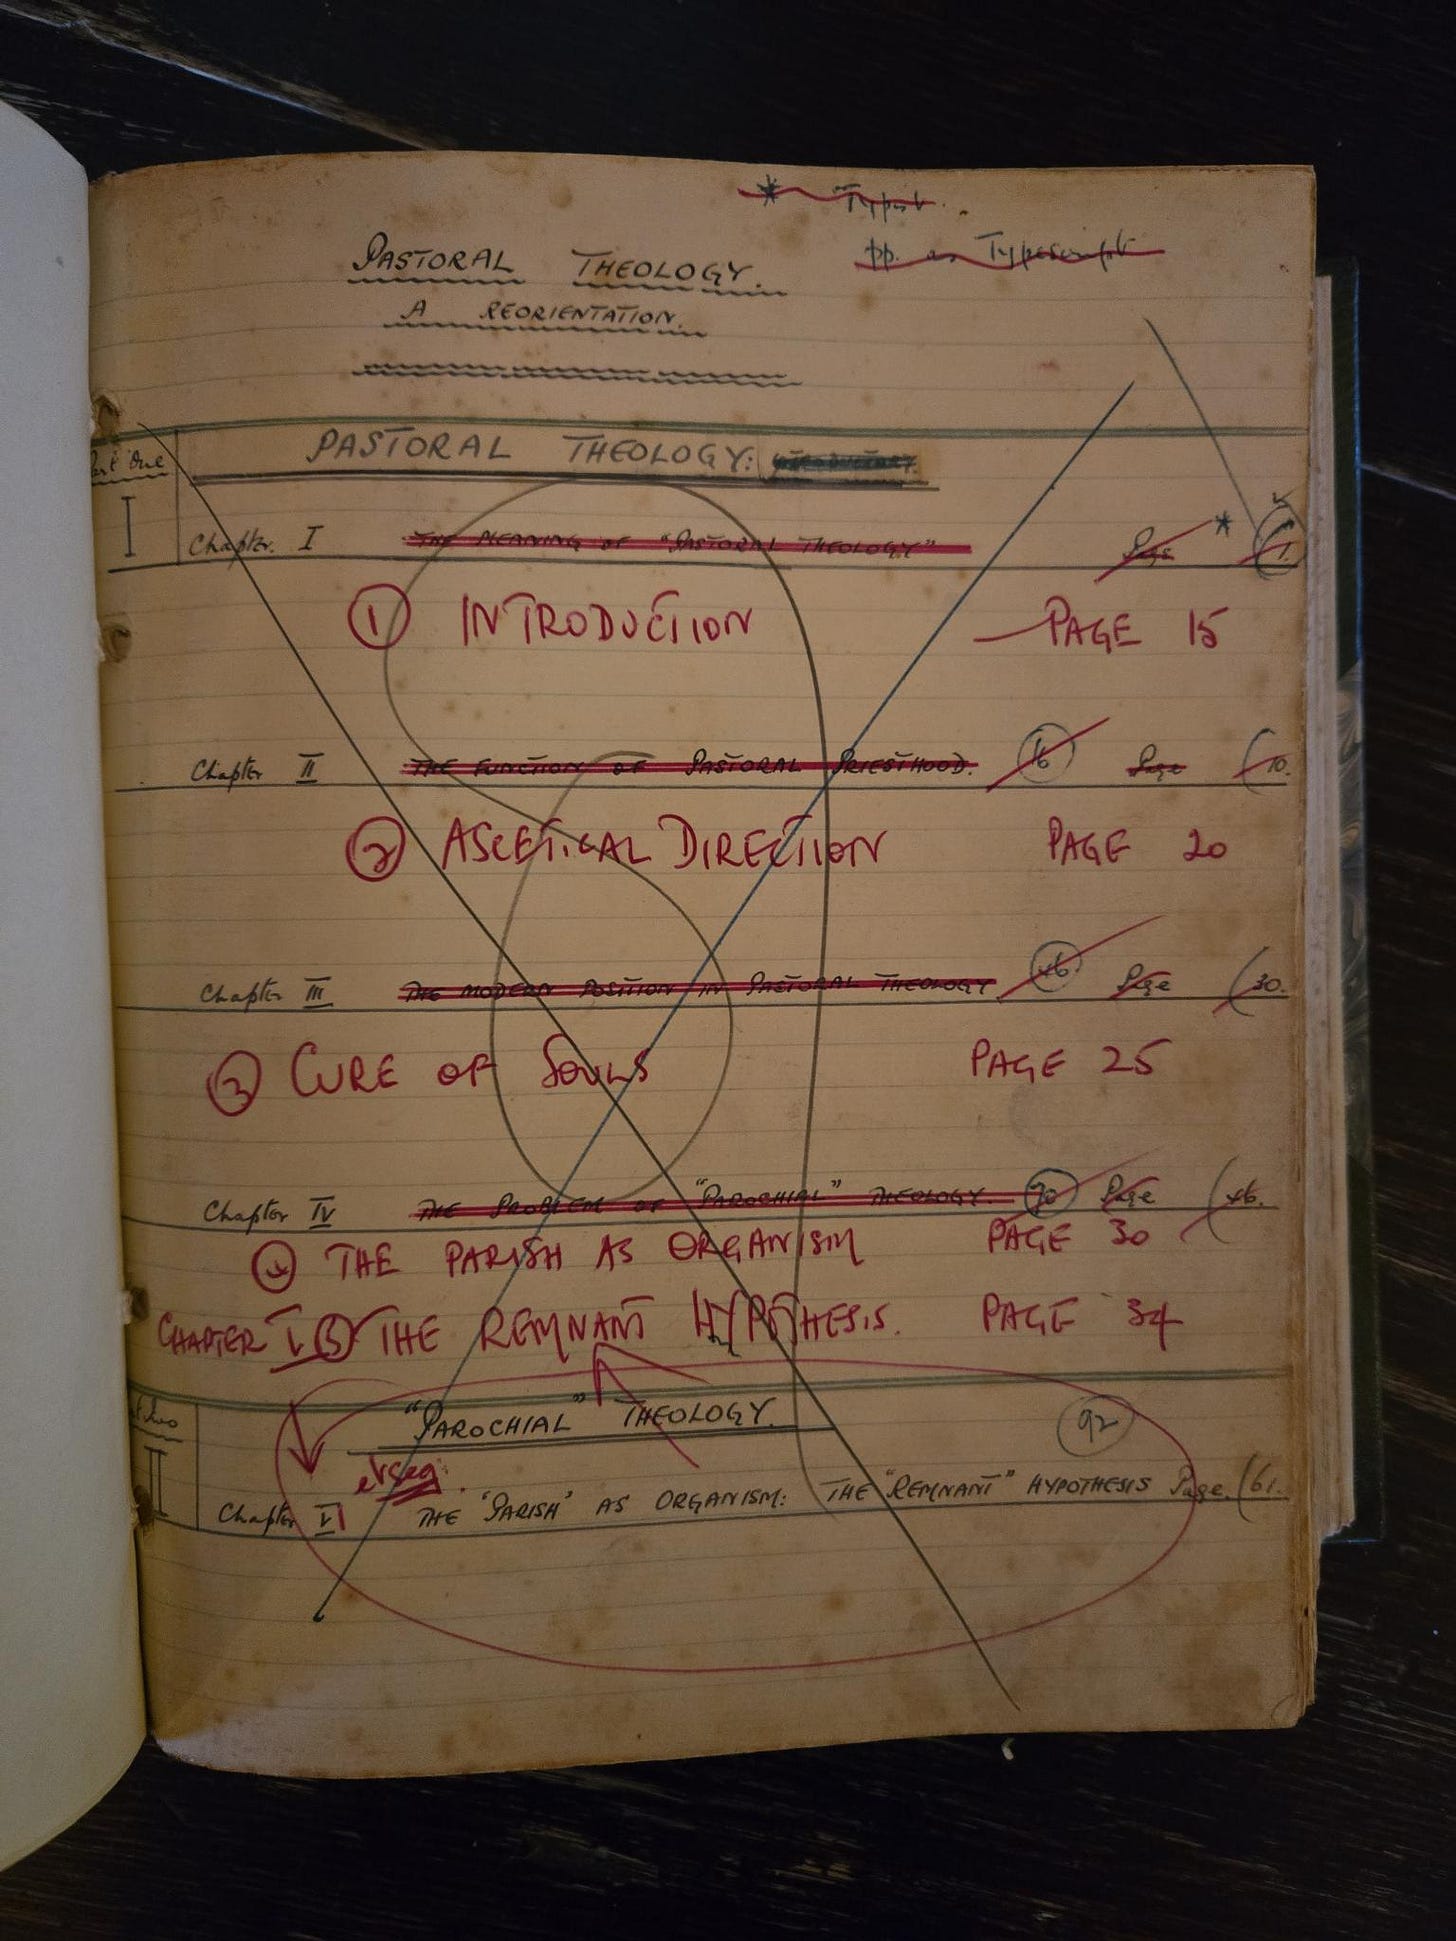 * Typist.
pp. as Typescript
PASTORAL THEOLOGY.
A REORIENTATION.
Part One
PASTORAL THEOLOGY:
I
Chapter I THE MEANING OF "PASTORAL THEOLOGY" Page * 1.
① INTRODUCTION — PAGE 15
Chapter II THE FUNCTION OF PASTORAL PRIESTHOOD. 16 Page (10.
② ASCETICAL DIRECTION PAGE 20
Chapter III THE MODERN POSITION IN PASTORAL THEOLOGY. 46 Page (30.
③ CURE OF SOULS PAGE 25
Chapter IV THE PROBLEM OF "PAROCHIAL" THEOLOGY. 70 Page (46.
④ THE PARISH AS ORGANISM PAGE 30
CHAPTER V ⑤ THE REMNANT HYPOTHESIS. PAGE 34
"PAROCHIAL" THEOLOGY. 92
II
Chapter VI THE 'PARISH' AS ORGANISM: THE "REMNANT" HYPOTHESIS Page. (61.